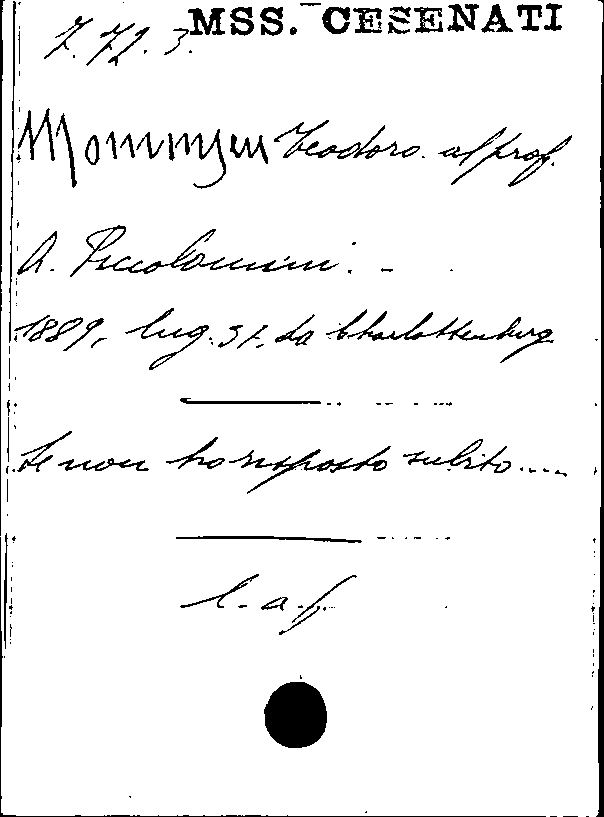 MSS. CESENATI
7. 72. 3.
Mommsen Teodoro al prof.
A. Piccolomini. -
1889, lug. 31, da Charlottenburg
Se non ho risposto subito....
l. a. f.